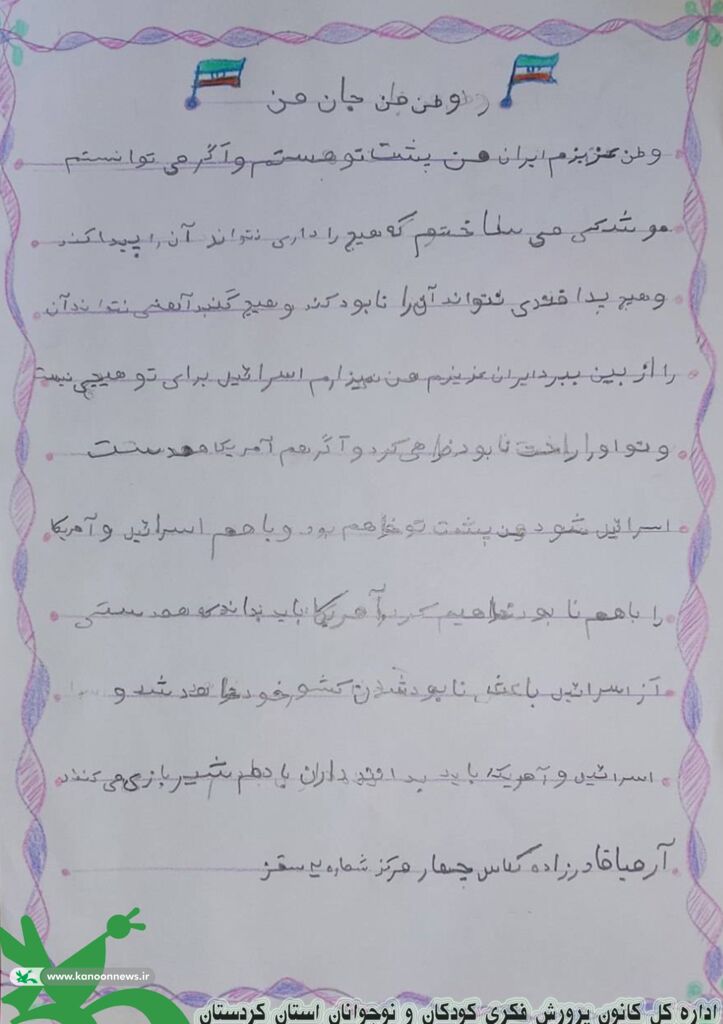 وطن من جان من
وطن عزیزم ایران من پشت تو هستم و اگر می توانستم
موشکی می ساختم که هیچ راداری نتواند آن را پیدا کند
و هیچ پدافندی نتواند آن را نابود کند و هیچ گنبد آهنی نتواند آن
را از بین ببرد ایران عزیزم من میزارم اسرائیل برای تو هیچی نیست
و تو او را راحت نابود خواهی کرد و اگر هم آمریکا همدست
اسرائیل شود من پشت تو خواهم بود و با هم اسرائیل و آمریکا
را باهم نابود خواهیم کرد آمریکا باید بداند که همدستی
از اسرائیل باعث نابود شدن کشور خود خواهد شد و
اسرائیل و آمریکا باید بدانند دارن با دم شیر بازی می کنند
آرمیا قادرزاده کلاس چهار مرکز شماره ۲ سقز
www.kanoonnews.ir
اداره کل کانون پرورش فکری کودکان و نوجوانان استان کردستان